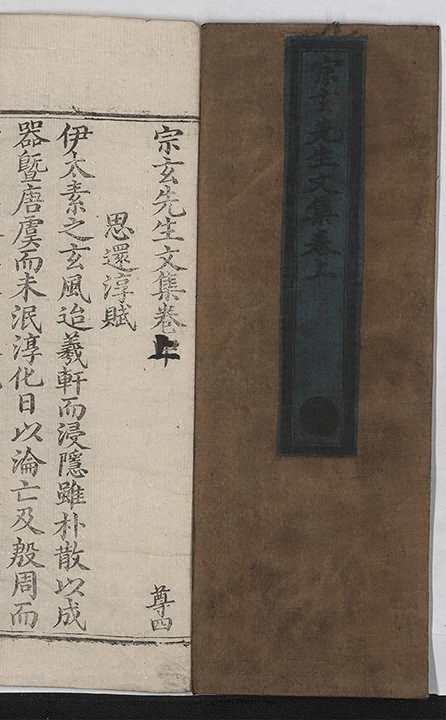 宗玄先生文集卷上
宗玄先生文集卷上
尊四
思還淳賦
伊太素之玄風迨羲軒而浸隱雖朴散以成
器曁唐虞而未泯淳化日以淪亡及殷周而